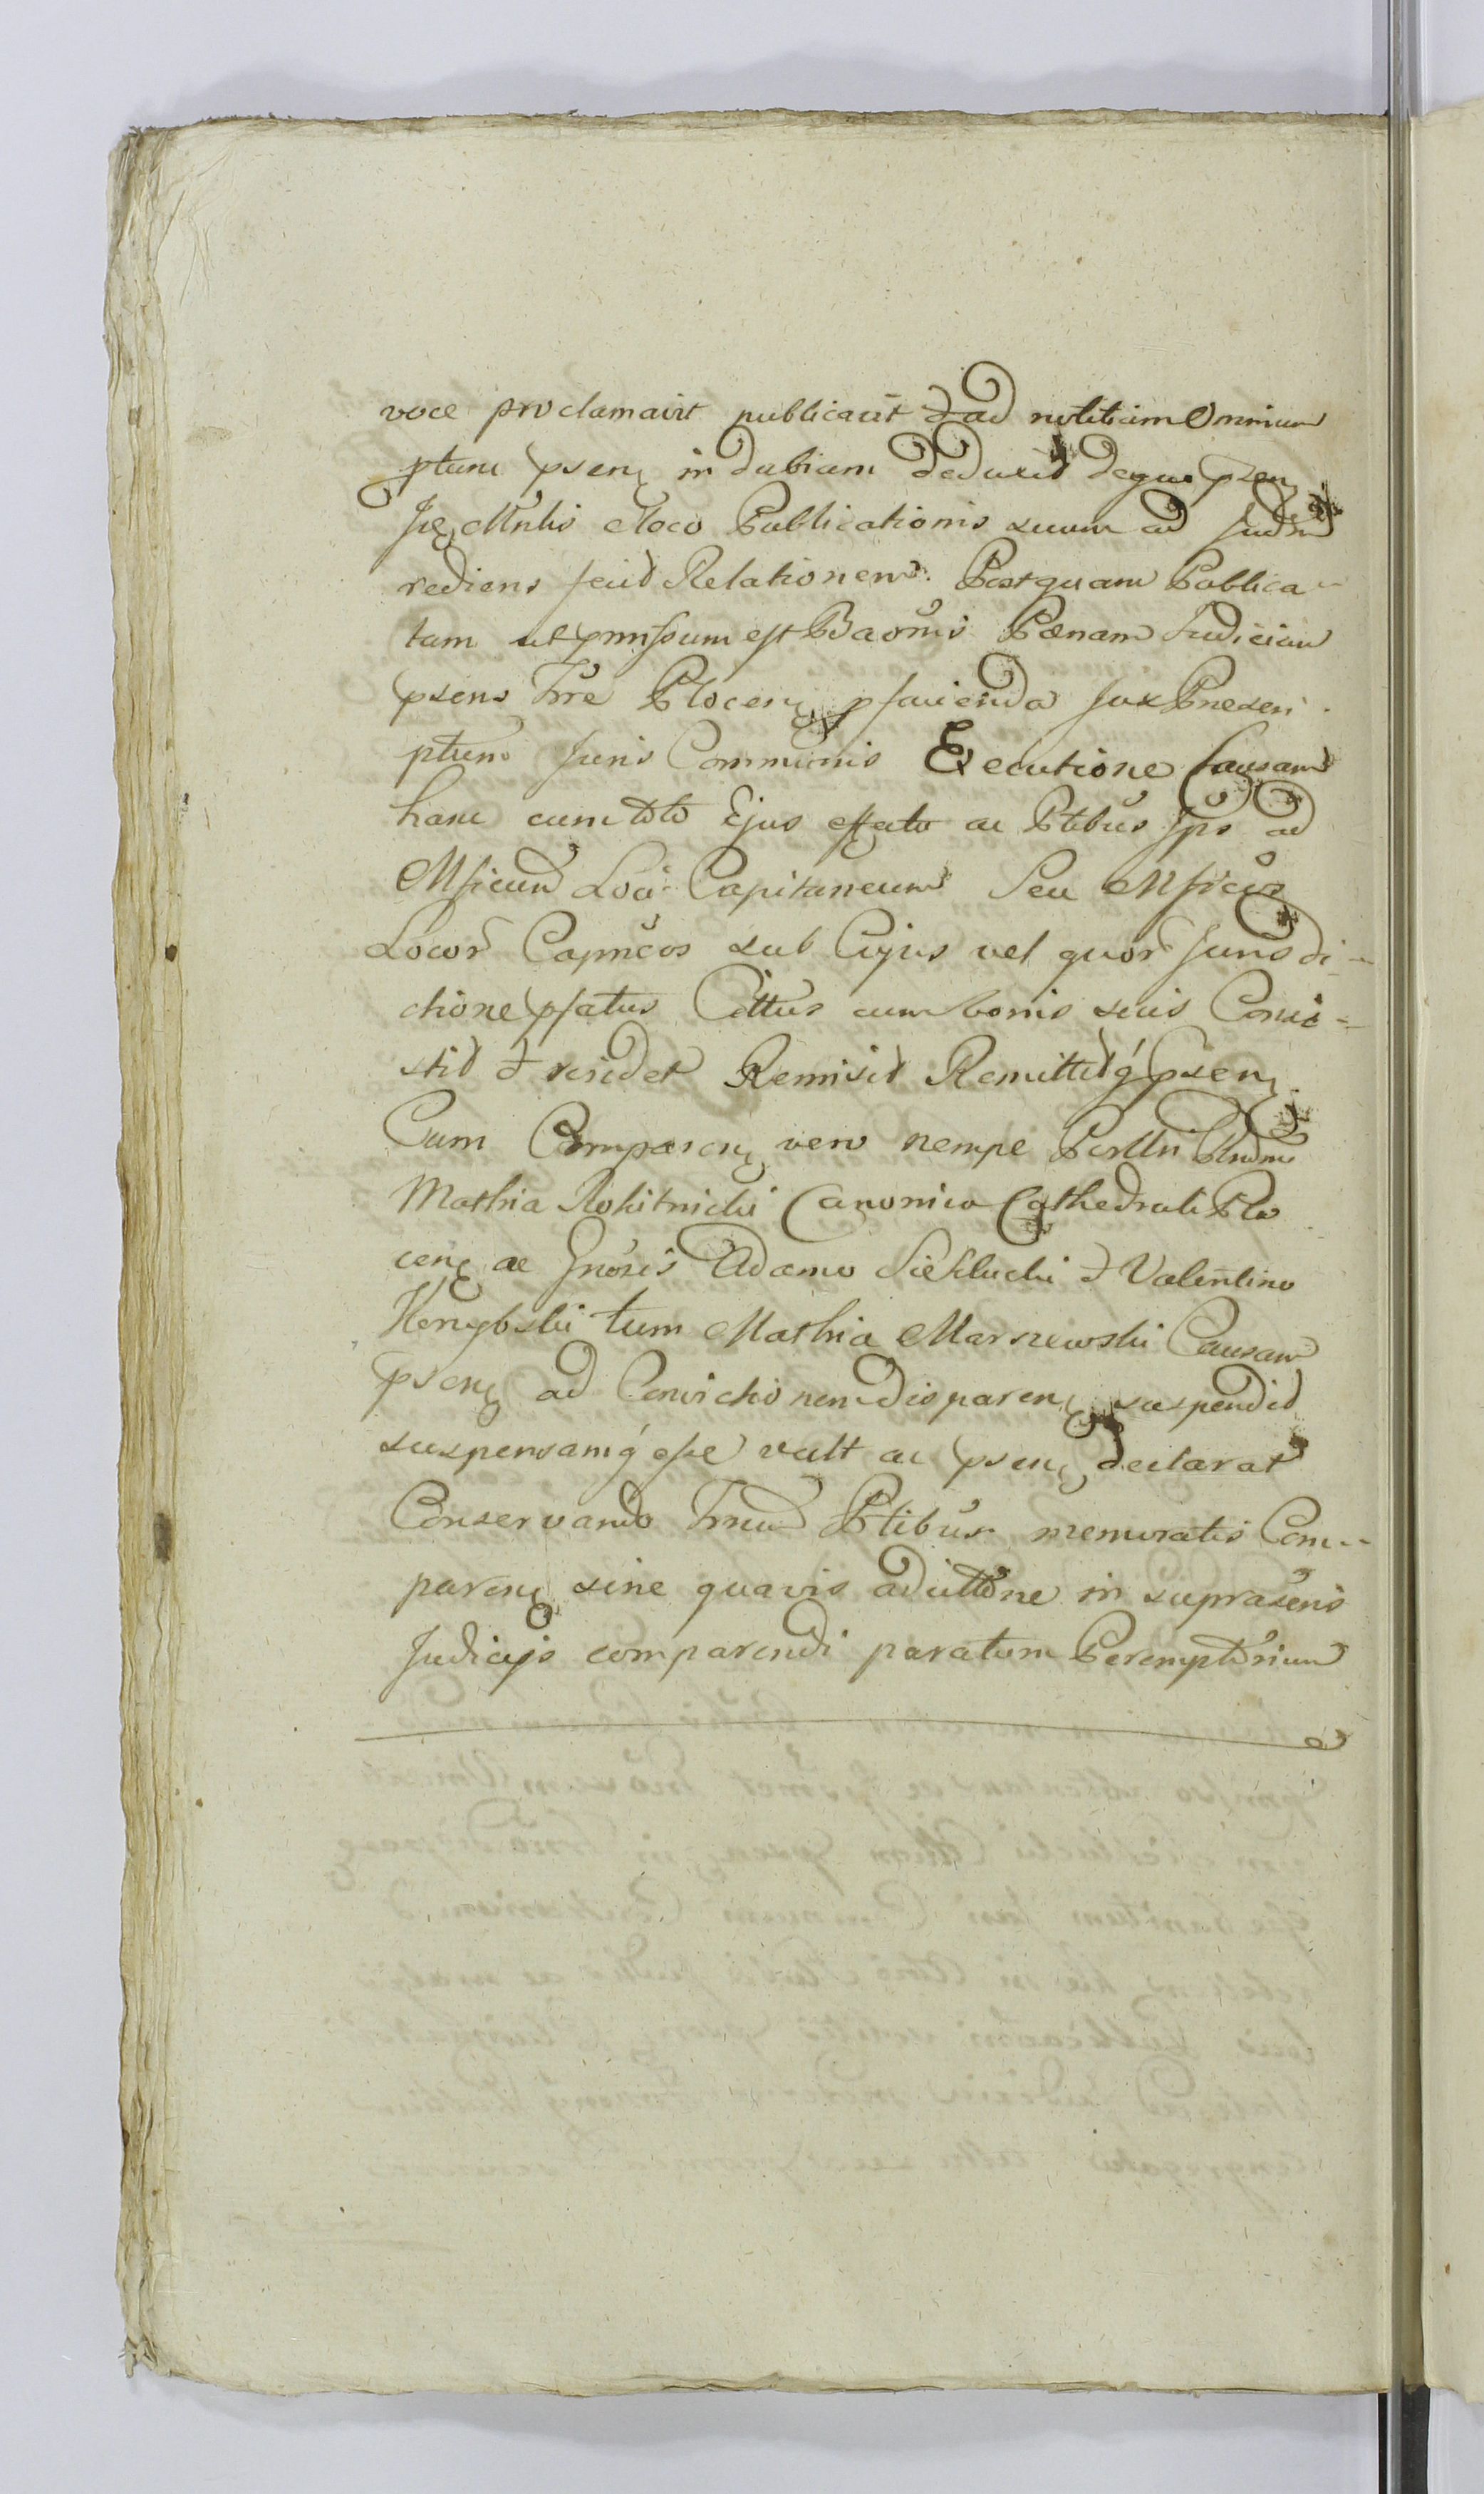 voce proclamavit publicavit & ad notitiam Omnium
ptum psenꝫ in dubiam deduxit deque psen
Ire Mnlis eloco Publicationis suum ad Judm
rediens fecit Relationem. Postquam Publica-
tam ut pmissum est Baonis Pænam Judicium
psens Trre Plocenꝫ p facienda Jux Prescri-
ptum Juris Communis Executione Causam
hanc cum toto Ejus effectu ac Ptibus Jpis ad
Mficum Loci Capitaneum Seu Mficos
Locor Capneos sub Cujus vel quor Jurisdi-
ctione pfatus Cittus cum bonis suis Consi-
stit & residet Remisit Remittitq psenꝫ
Cum Comparenꝫ vero nempe Perllri Rndm
Mathia Rokitnicki Canonico Cathedrali Plo
cenꝫ ac Gnosis Adamo Siekłucki & Valentino
tum Mathia Marszewski Causam
psenꝫ ad Convictionem disparenꝫ suspendit
suspensamq esse vult ac psenꝫ declarat
Conservando Trnum Ptibus memoratis Com-
parenꝫ sine quavis adcittone in suprasenis
Judicijs comparendi paratum Peremptorium